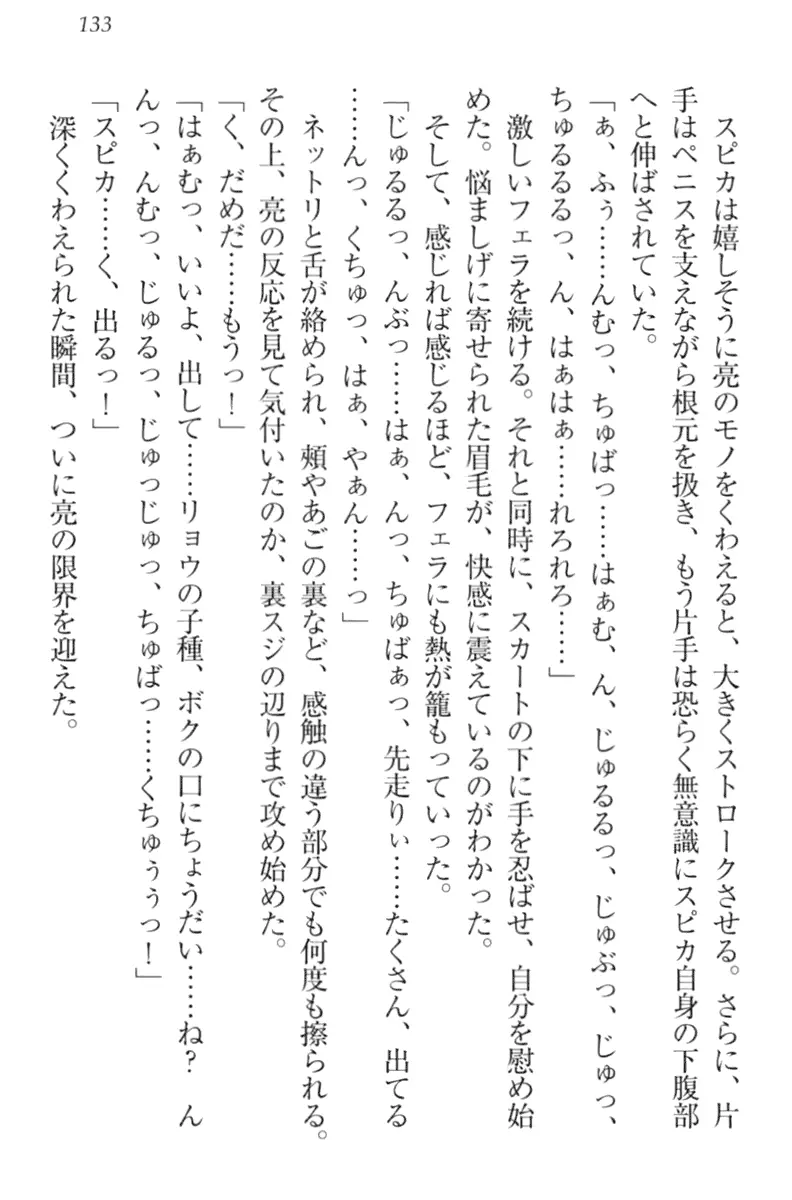 133
　スピカは嬉しそうに亮のモノをくわえると、大きくストロークさせる。さらに、片
手はペニスを支えながら根元を扱き、もう片手は恐らく無意識にスピカ自身の下腹部
へと伸ばされていた。
「ぁ、ふぅ……んむっ、ちゅばっ……はぁむ、ん、じゅるるっ、じゅぶっ、じゅっ、
ちゅるるるっ、ん、はぁはぁ……れろれろ……」
　激しいフェラを続ける。それと同時に、スカートの下に手を忍ばせ、自分を慰め始
めた。悩ましげに寄せられた眉毛が、快感に震えているのがわかった。
　そして、感じれば感じるほど、フェラにも熱が籠もっていった。
「じゅるるっ、んぶっ……はぁ、んっ、ちゅばぁっ、先走りぃ……たくさん、出てる
……んっ、くちゅっ、はぁ、やぁん……っ」
　ネットリと舌が絡められ、頬やあごの裏など、感触の違う部分でも何度も擦られる。
その上、亮の反応を見て気付いたのか、裏スジの辺りまで攻め始めた。
「く、だめだ……もうっ！」
「はぁむっ、いいよ、出して……リョウの子種、ボクの口にちょうだい……ね？　ん
んっ、んむっ、じゅるっ、じゅっじゅっ、ちゅばっ……くちゅぅぅっ！」
「スピカ……く、出るっ！」
　深くくわえられた瞬間、ついに亮の限界を迎えた。